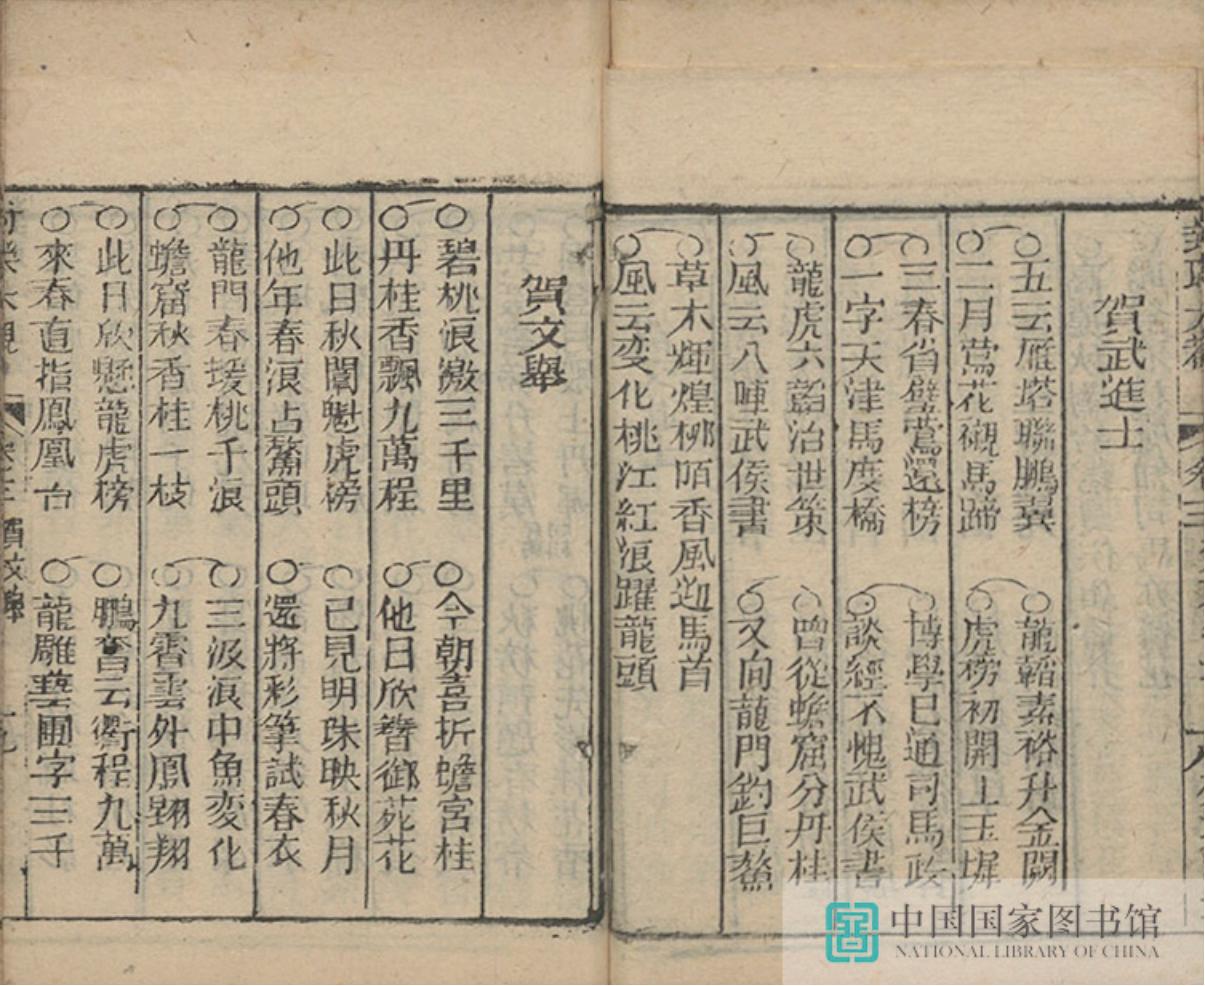 賀武進士
五云雁塔聯鵬翼
二月鶯花襯馬蹄
龍韜素裕升金闕
虎榜初開上玉墀
三春省壁鶯還榜
一字天津馬度橋
博學已通司馬政
談經不愧武侯書
龍虎六韜治世策
風云八陣武侯書
曾從蟾窟分丹桂
又向龍門釣巨鰲
草木輝煌柳陌香風迎馬首
風云变化桃江紅浪躍龍頭
賀文舉
碧桃浪激三千里
丹桂香飄九萬程
今朝喜折蟾宮桂
他日欣簪御苑花
此日秋闈魁虎榜
他年春浪占鰲頭
已見明珠映秋月
還將彩筆試春衣
龍門春暖桃千浪
蟾窟秋香桂一枝
三汲浪中魚变化
九霄雲外鳳翱翔
此日欣懸龍虎榜
來春直指鳳凰台
鵬奮云衢程九萬
龍雕藝圃字三千
中国国家图书馆
NATIONAL LIBRARY OF CHINA